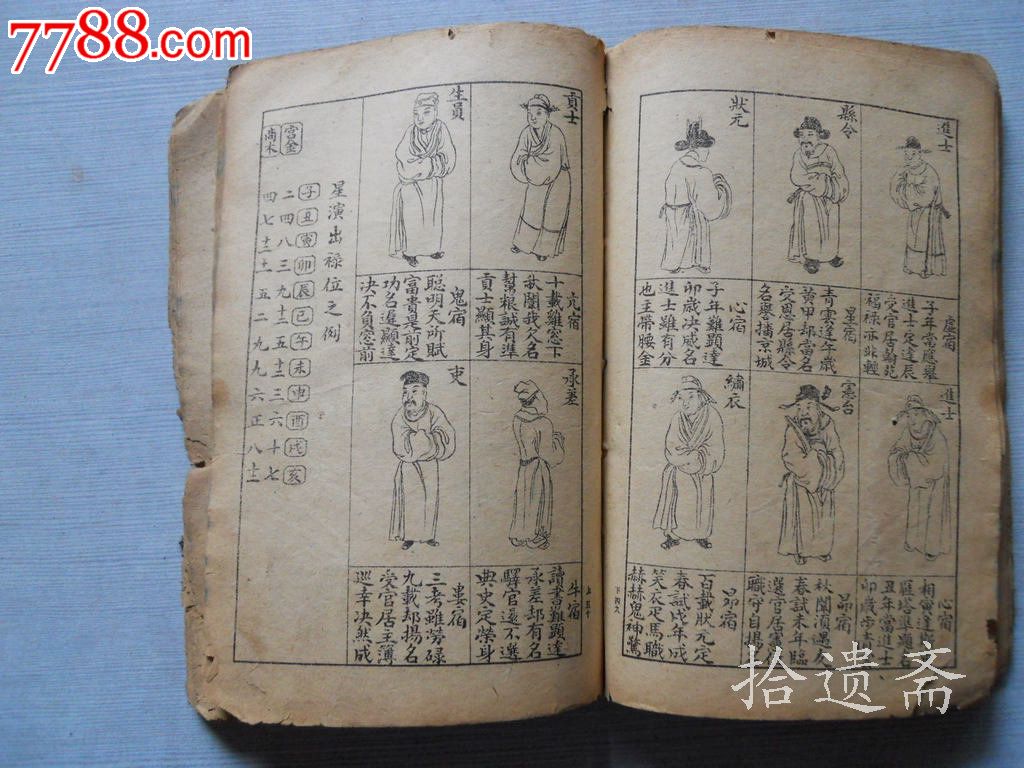 7788.com
進士
虛宿
子年當應舉
進士定達辰
受官居翰苑
福祿亦非輕
縣令
星宿
青雲逢午歲
黃甲却當名
受恩居縣令
名譽播京城
狀元
心宿
子年難顯達
卯歲决威名
進士雖有分
也主帶腰金
進士
心宿
相寅達
雁塔題名
丑年當進士
卯歲步青
憲台
昴宿
秋闈須遇亥
春試未年臨
選官居憲
職守自揚
繡衣
昴宿
百載狀元定
春試戌年成
笑衣走馬職
赫赫鬼神驚
貢士
亢宿
十載雞窓下
秋闈我久名
幫粮誠有準
貢士顯其身
生員
鬼宿
聰明天所賦
富貴是前定
功名遲顯達
决不負窓前
承差
牛宿
讀書難顯達
承差却有名
驛官還不選
典史定榮身
吏
婁宿
三考雖勞碌
九載却揚名
受官居主薄
巡幸决然成
星演出祿位之例
子丑寅卯辰巳午未申酉戌亥
宮金
二四八三九十二五十二三六十七
商木
四七十二十一五二九九六正八十一
拾遗斋